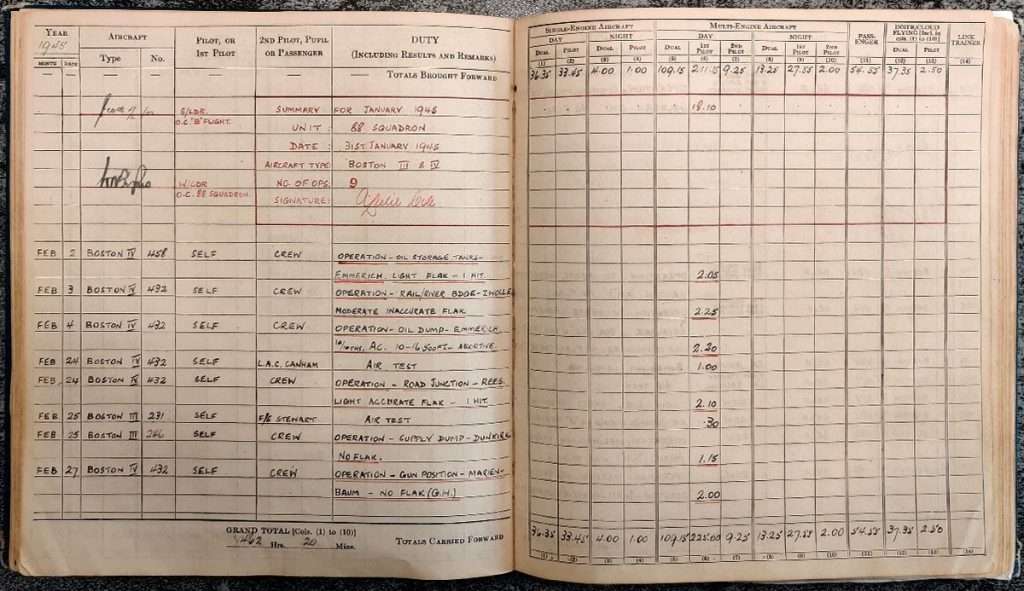 YEAR AIRCRAFT PILOT, OR 1ST PILOT 2ND PILOT, PUPIL OR PASSENGER DUTY (INCLUDING RESULTS AND REMARKS) SINGLE-ENGINE AIRCRAFT MULTI-ENGINE AIRCRAFT PASS-ENGER INSTR/CLOUD FLYING [Incl. in cols. (1) to (10)] LINK TRAINER
1945 DAY NIGHT DAY NIGHT
MONTH DATE Type No. DUAL PILOT DUAL PILOT DUAL 1ST PILOT 2ND PILOT DUAL 1ST PILOT 2ND PILOT DUAL PILOT
(1) (2) (3) (4) (5) (6) (7) (8) (9) (10) (11) (12) (13) (14)
— — — — — — TOTALS BROUGHT FORWARD 36.35 33.45 4.00 1.00 109.15 9.25 13.25 27.55 2.00 54.55 37.35 2.50
S/LDR. SUMMARY FOR JANUARY 1945 18.10
O.C. "B" FLIGHT.
UNIT: 88 SQUADRON
DATE: 31ST JANUARY 1945
AIRCRAFT TYPE: BOSTON III & IV
W/CDR NO. OF OPS. 9
O.C. 88 SQUADRON. SIGNATURE:
FEB 2 BOSTON IV 458 SELF CREW OPERATION - OIL STORAGE TANKS-
EMMERICH. LIGHT FLAK - 1 HIT. 2.05
FEB 3 BOSTON IV 432 SELF CREW OPERATION - RAIL/RIVER BDGE - ZWOLLE
MODERATE INACCURATE FLAK 2.25
FEB 4 BOSTON IV 432 SELF CREW OPERATION - OIL DUMP - EMMERICH
10/10THS. AC. 10-16500FT - ABORTIVE. 2.20
FEB 24 BOSTON IV 432 SELF L.A.C. CANHAM AIR TEST 1.00
FEB. 24 BOSTON IV 432 SELF CREW OPERATION - ROAD JUNCTION - REES.
LIGHT ACCURATE FLAK - 1 HIT. 2.10
FEB 25 BOSTON III 231 SELF F/S STEWART AIR TEST .30
FEB 25 BOSTON III SELF CREW OPERATION - SUPPLY DUMP - DUNKIRK
NO FLAK. 1.15
FEB 27 BOSTON IV 432 SELF CREW OPERATION - GUN POSITION - MARIEN-
BAUM - NO FLAK (G.H.) 2.00
GRAND TOTAL [Cols. (1) to (10)]
462 Hrs. 20 Mins. TOTALS CARRIED FORWARD 36.35 33.45 4.00 1.00 109.15 225.00 9.25 13.25 27.55 2.00 54.55 37.35 2.50
(1) (2) (3) (4) (5) (6) (7) (8) (9) (10) (11) (12) (13) (14)